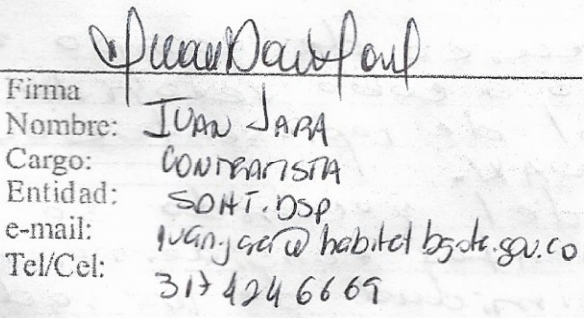 Firma
Nombre: JUAN JARA
Cargo: CONTRATISTA
Entidad: SDHT.DSP
e-mail: juan.jara@habitatbogota.gov.co
Tel/Cel: 317 424 6669